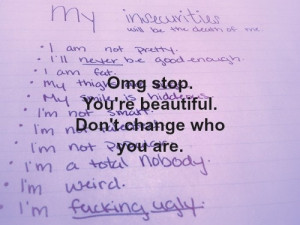 My insecurities
will be the death of me
• I am not pretty.
• I'll never be good enough.
• I am fat.
Omg stop.
• My thighs
You're beautiful.
• My smile is hideous.
• I'm not smart.
Don't change who
• I'm not
you are.
• I'm not
• I'm a total nobody.
• I'm weird.
• I'm fucking ugly.